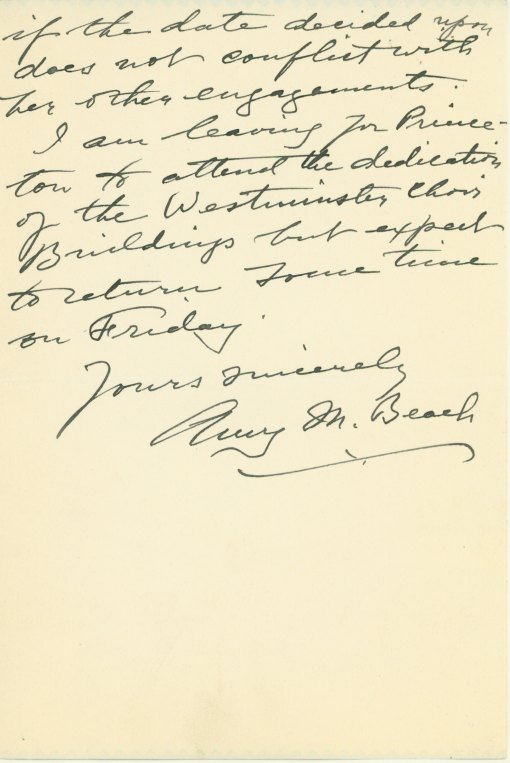 if the date decided upon
does not conflict with
her other engagements.
I am leaving for Prince-
ton to attend the dedication
of the Westminster Choir
Buildings but expect
to return some time
on Friday.
Yours sincerely
Amy M. Beach